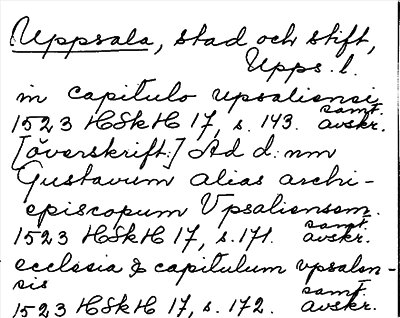 Uppsala, stad och stift,
Upps. l.
in capitulo upsaliensi
1523 HSkH 17, s. 143. samt. avskr.
[överskrift:] Ad d. nm
Gustavum alias archi-
episcopum Vpsaliensem.
1523 HSkH 17, s. 171. samt. avskr.
ecclesia & capitulum vpsalen-
sis
1523 HSkH 17, s. 172. samt. avskr.